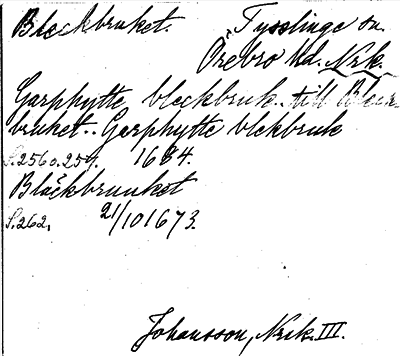 Bleckbruket. Tysslinge sn.
Örebro hd. Nrk.
Garphytte bleckbruk.. till Bleck-
bruket.. Garphytte blckbruk
S.256 o.257. 1684.
Bläckbrunket
S.262. 21/10 1673.
Johansson, Nrk. III.